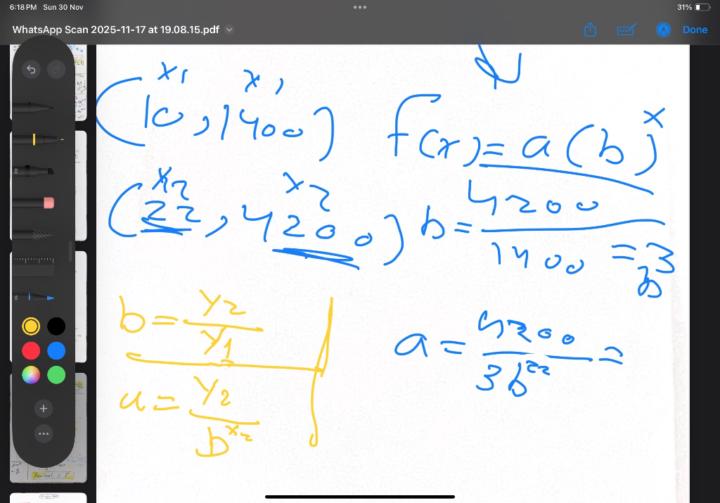 6:18 PM Sun 30 Nov
31%
WhatsApp Scan 2025-11-17 at 19.08.15.pdf
Done
x₁ x₁
(10, 1400)
f(x) = a(b)ˣ
x₂ x₂
(22, 4200)
b = 4200/1400 = 3
b
b = y₂/y₁
a = y₂/b^x₂
a = 4200/3b²² =